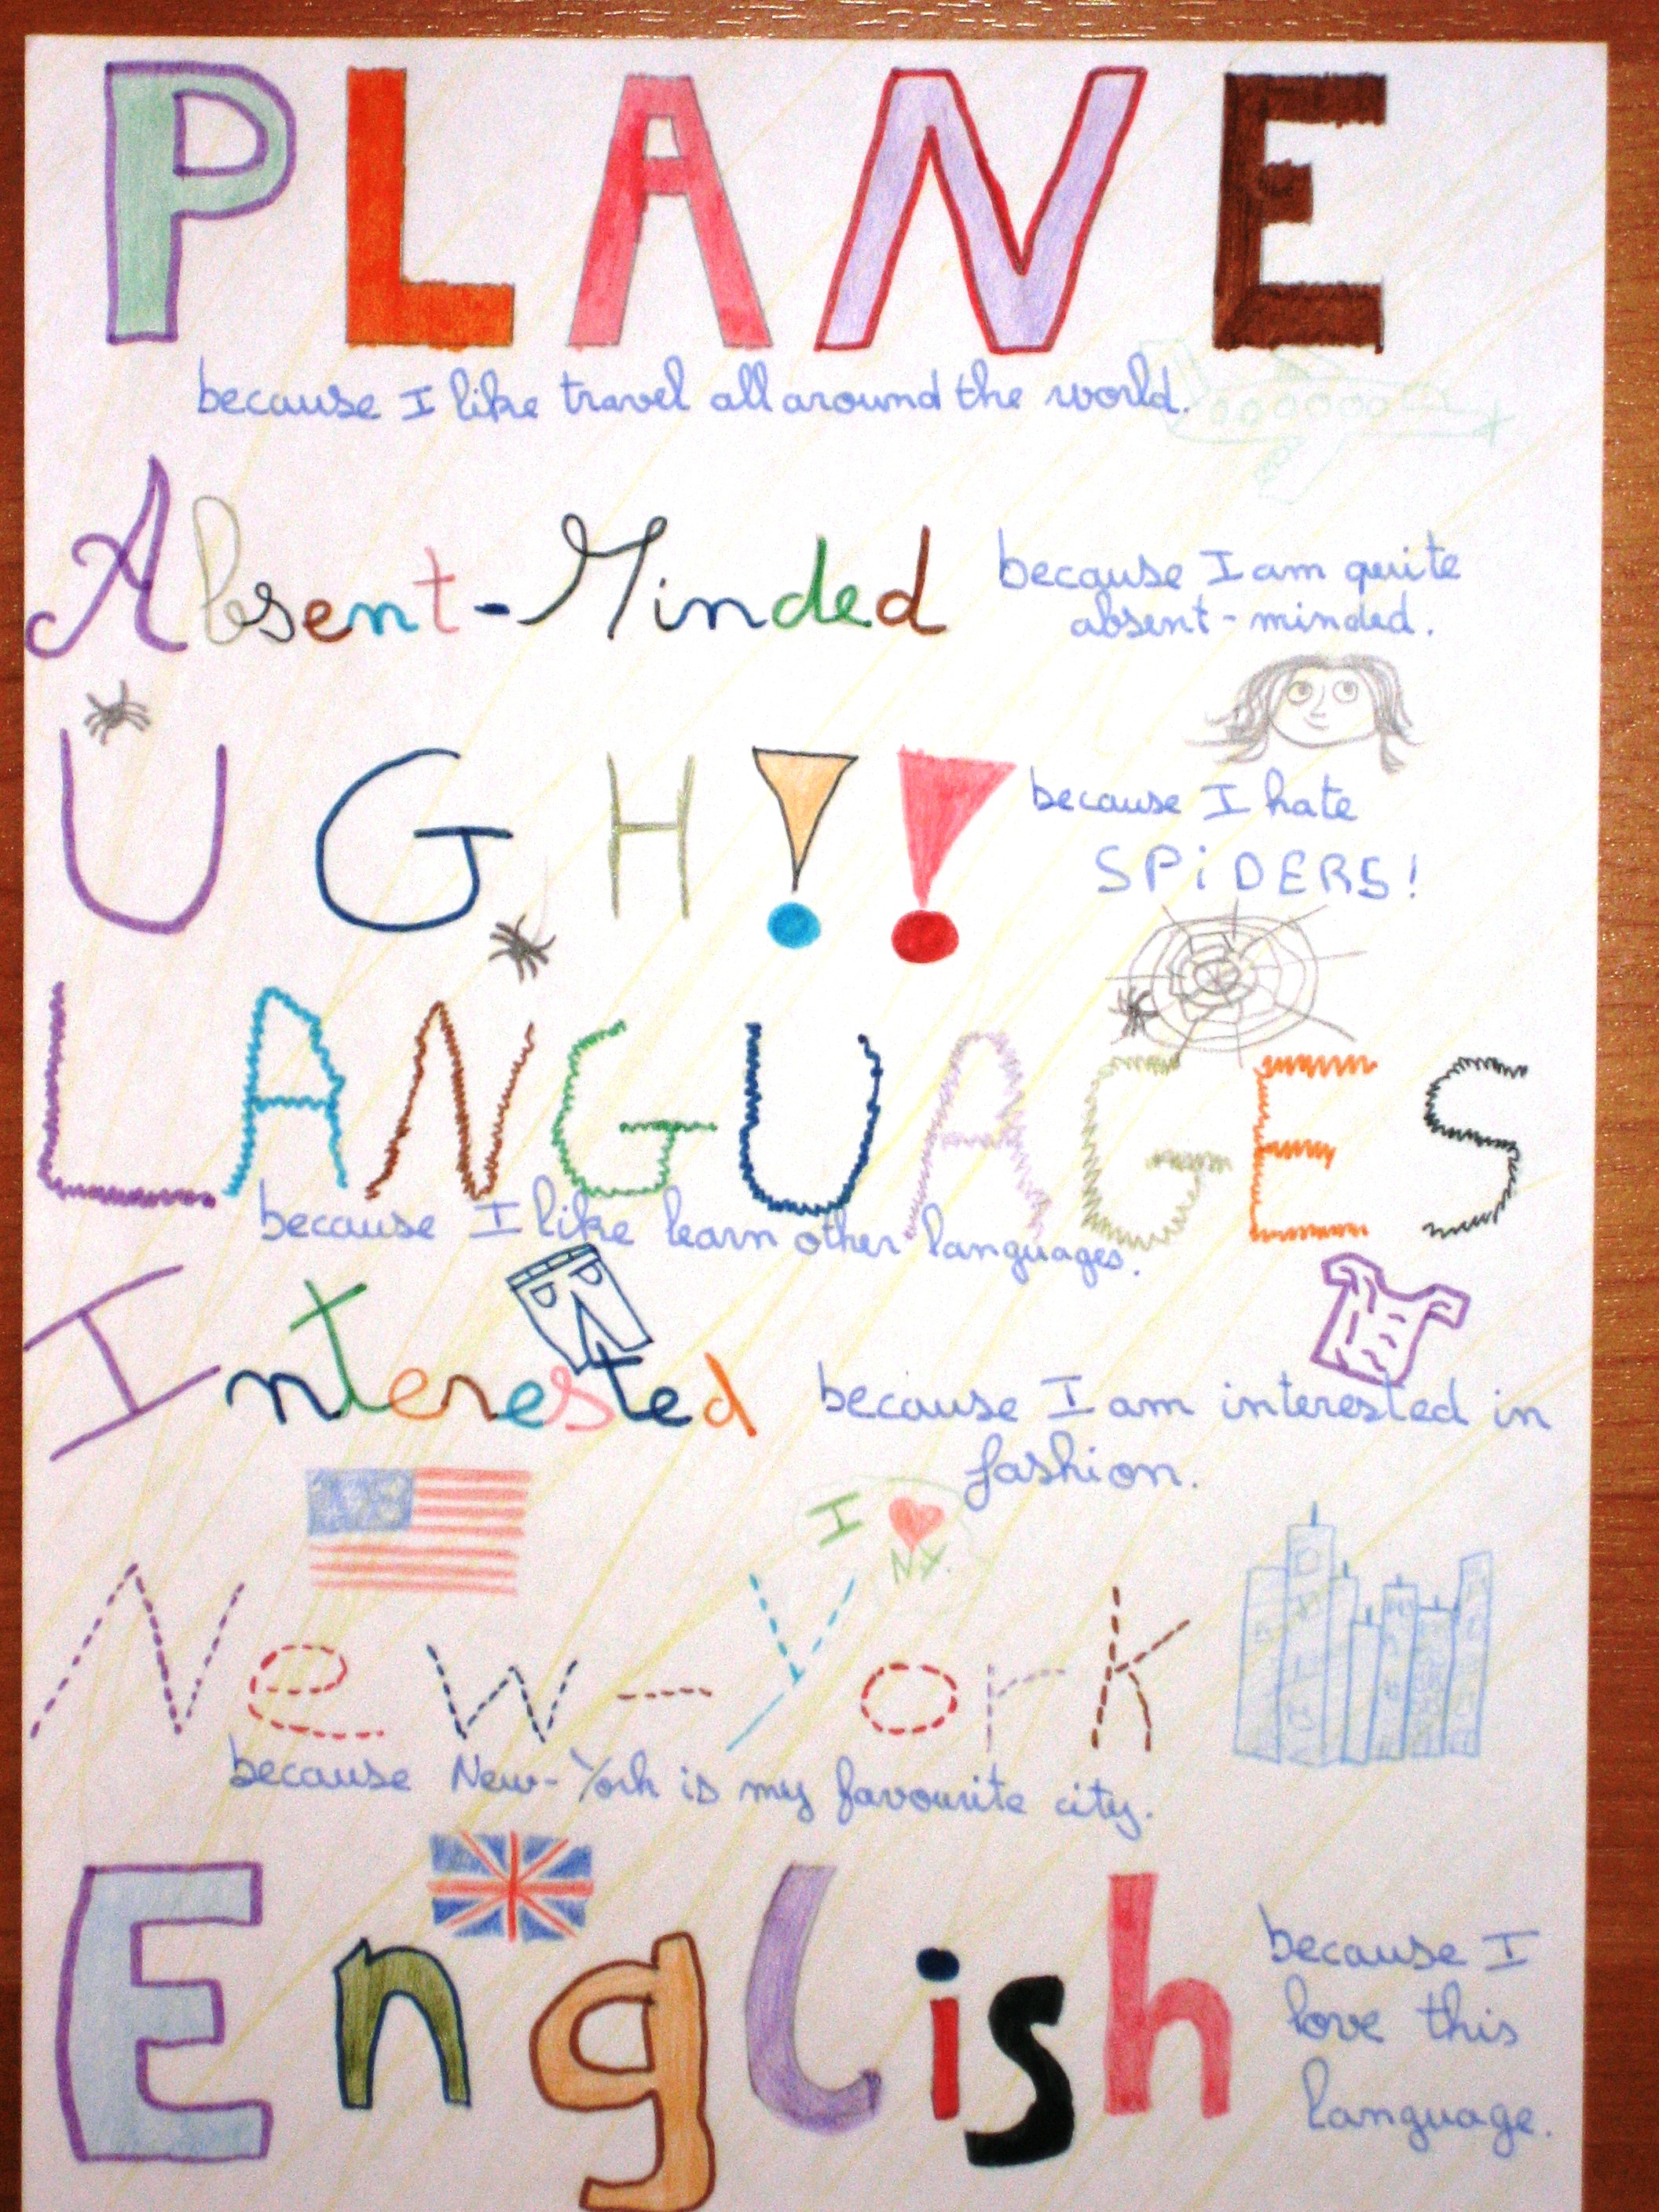 PLANE
because I like travel all around the world.
Absent-Minded
because I am quite
absent-minded.
UGH!!
because I hate
SPiDERS!
LANGUAGES
because I like learn other languages.
Interested
because I am interested in
fashion.
I ♥
NY.
New-York
because New-York is my favourite city.
English
because I
love this
language.